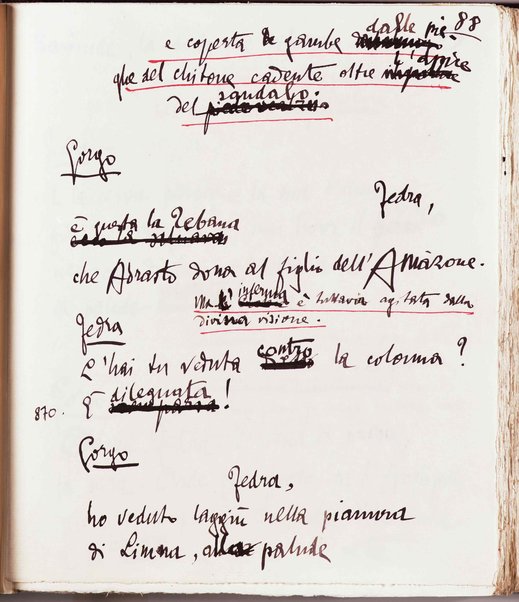 88
e coperta le gambe dalle pie-
ghe del chitone cadente oltre l'apice
del sandalo.
Gorgo
Fedra,
è questa la Tebana
che Adrasto dona al figlio dell'Amàzone.
Ma l'inferma è tuttavia agitata dalla
divina visione.
Fedra
L'hai tu veduta contro la colonna?
870.
È dileguata!
Gorgo
Fedra,
ho veduto laggiù nella pianura
di Limna, alla palude